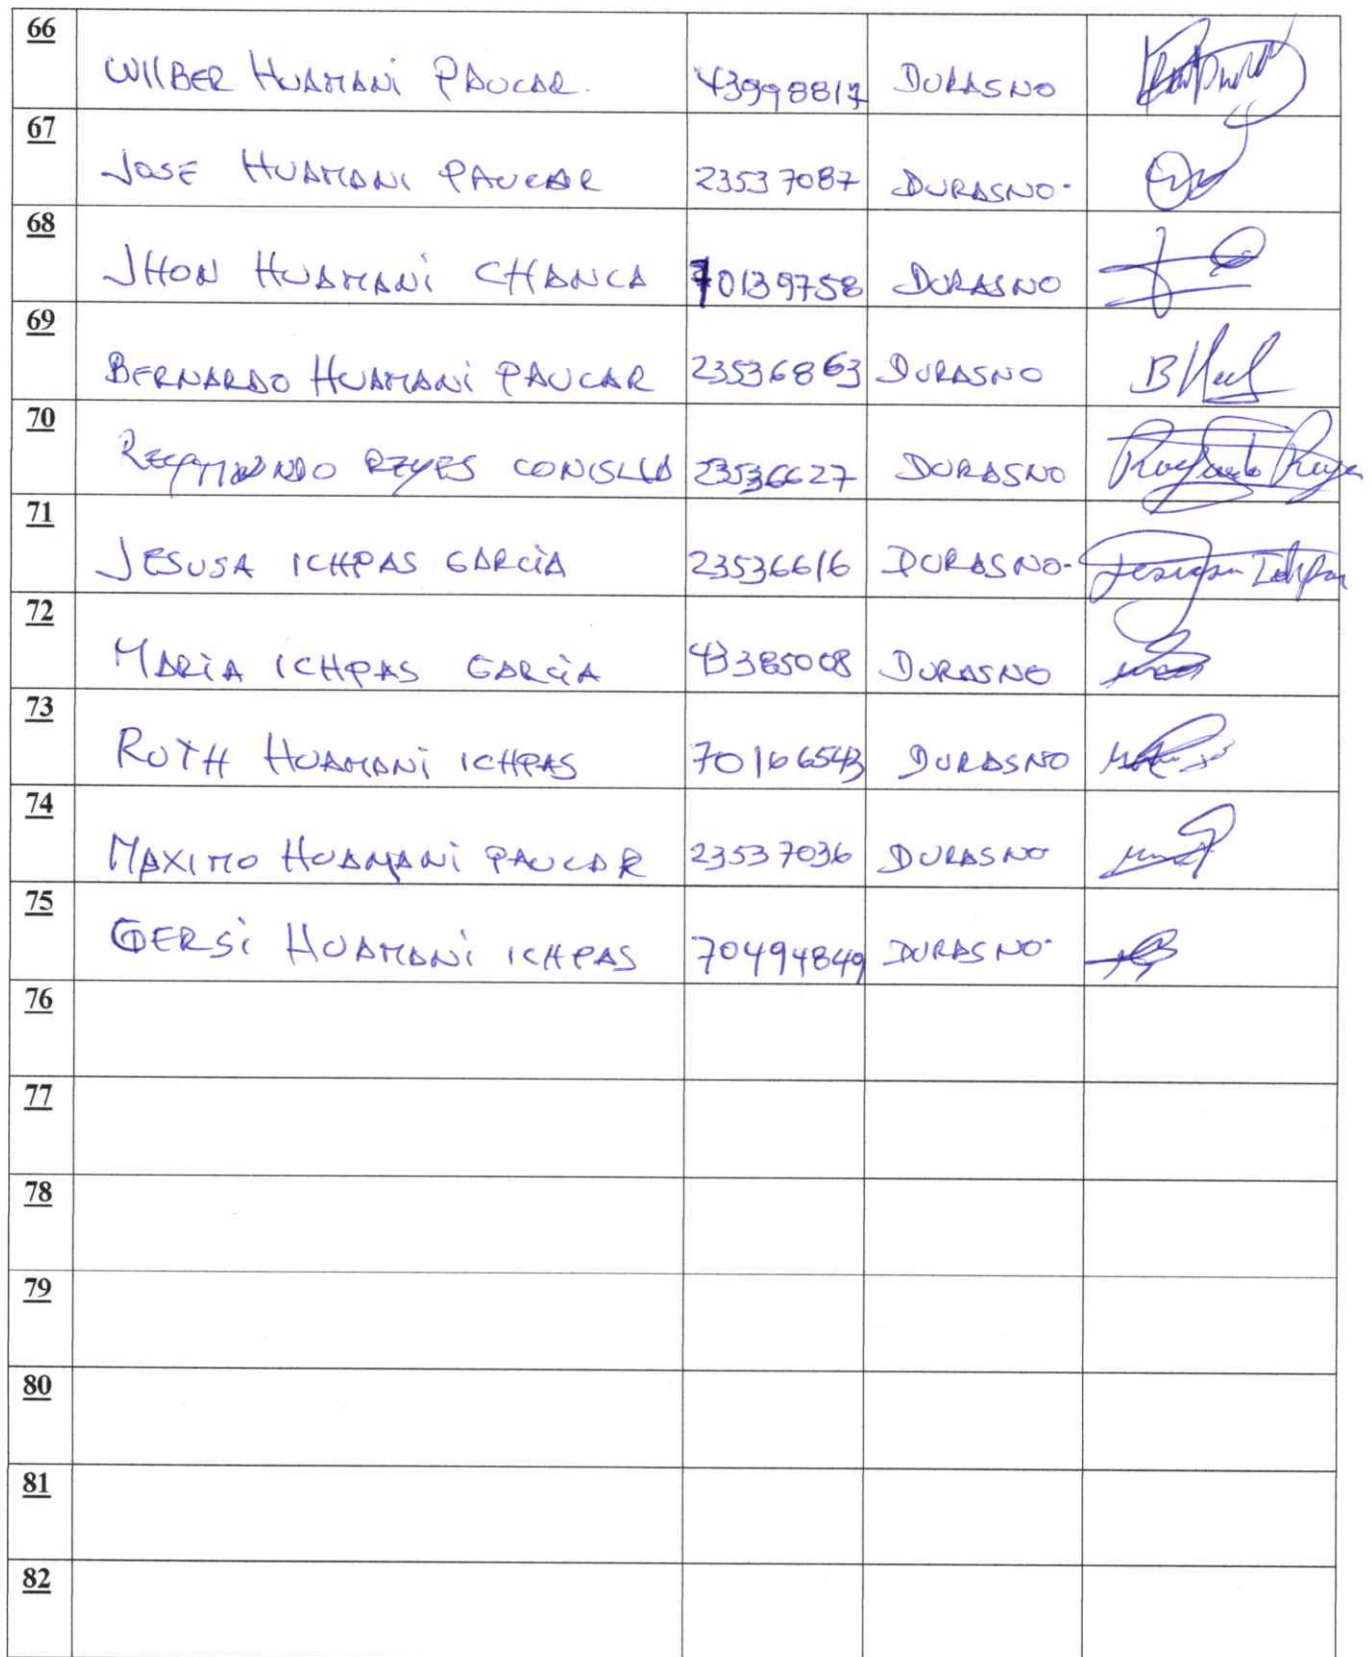 66 WILBER HUAMANI PAUCAR. 43998817 DURASNO
67 JOSE HUAMANI PAUCAR 23537087 DURASNO-
68 JHON HUAMANI CHANCA 70139758 DURASNO
69 BERNARDO HUAMANI PAUCAR 23536863 DURASNO
70 REYES 23536627 DURASNO
71 JESUSA ICHPAS GARCÍA 23536616 DURASNO-
72 MARÍA ICHPAS GARCÍA 43385008 DURASNO
73 RUTH HUAMANI ICHPAS 70166543 DURASNO
74 MAXIMO HUAMANI PAUCAR 23537036 DURASNO
75 GERSI HUAMANI ICHPAS 70494849 DURASNO-
76
77
78
79
80
81
82